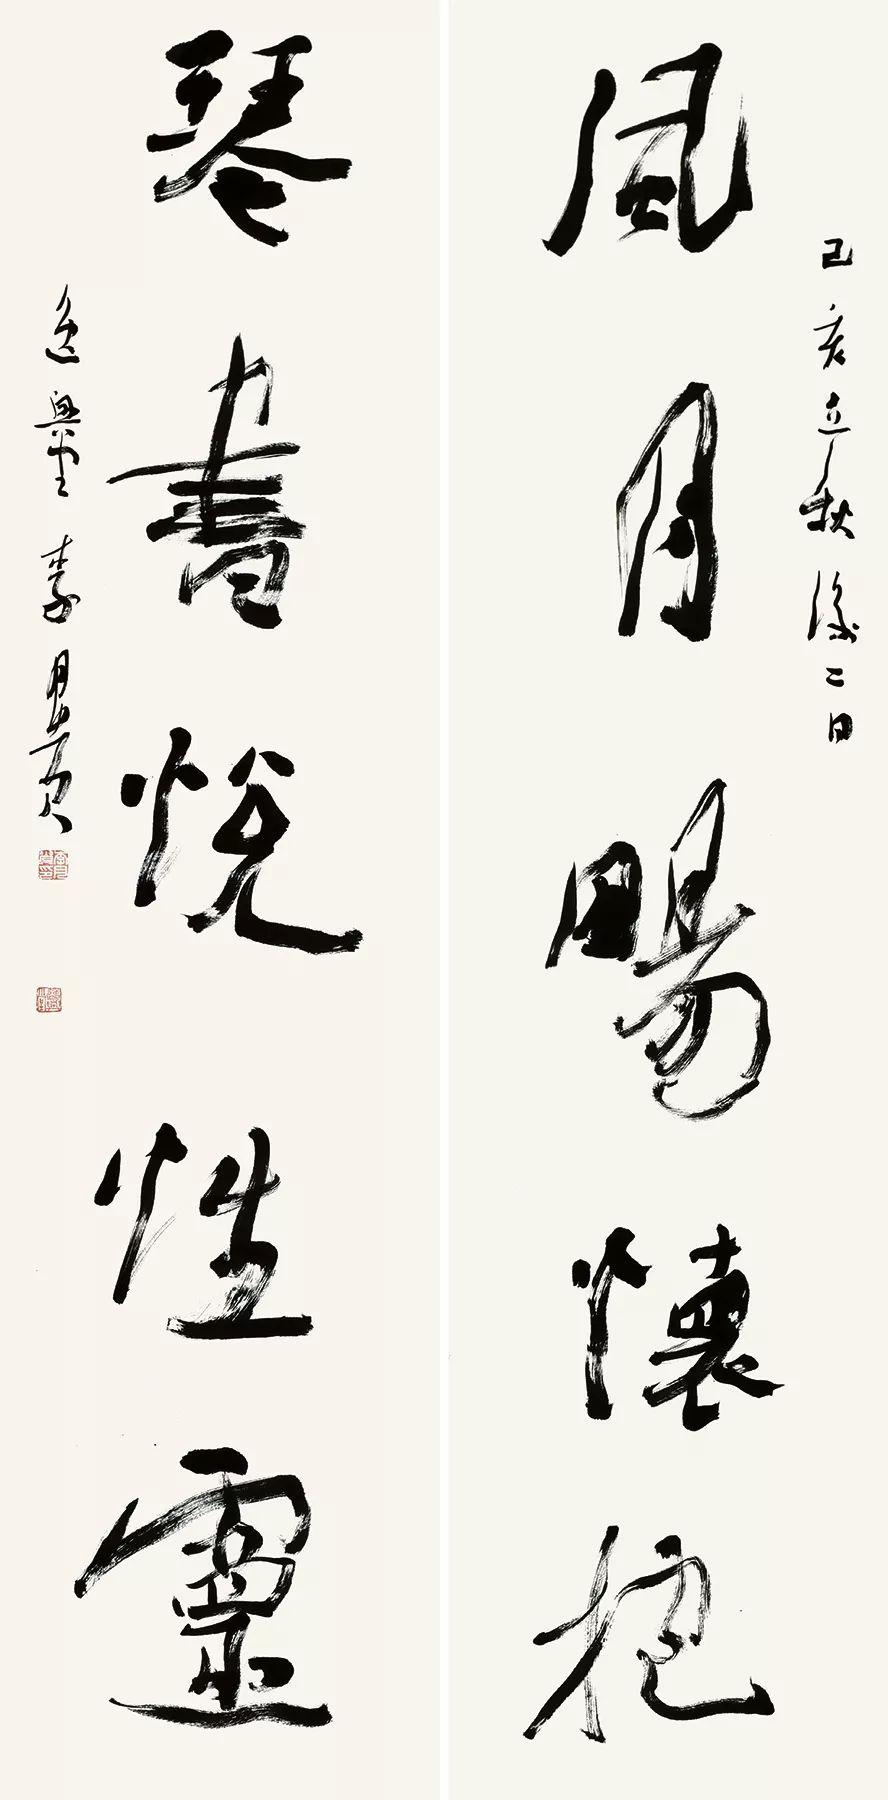 己亥立秋後二日
風月暢懷抱
琴書悦性靈
逸興堂李